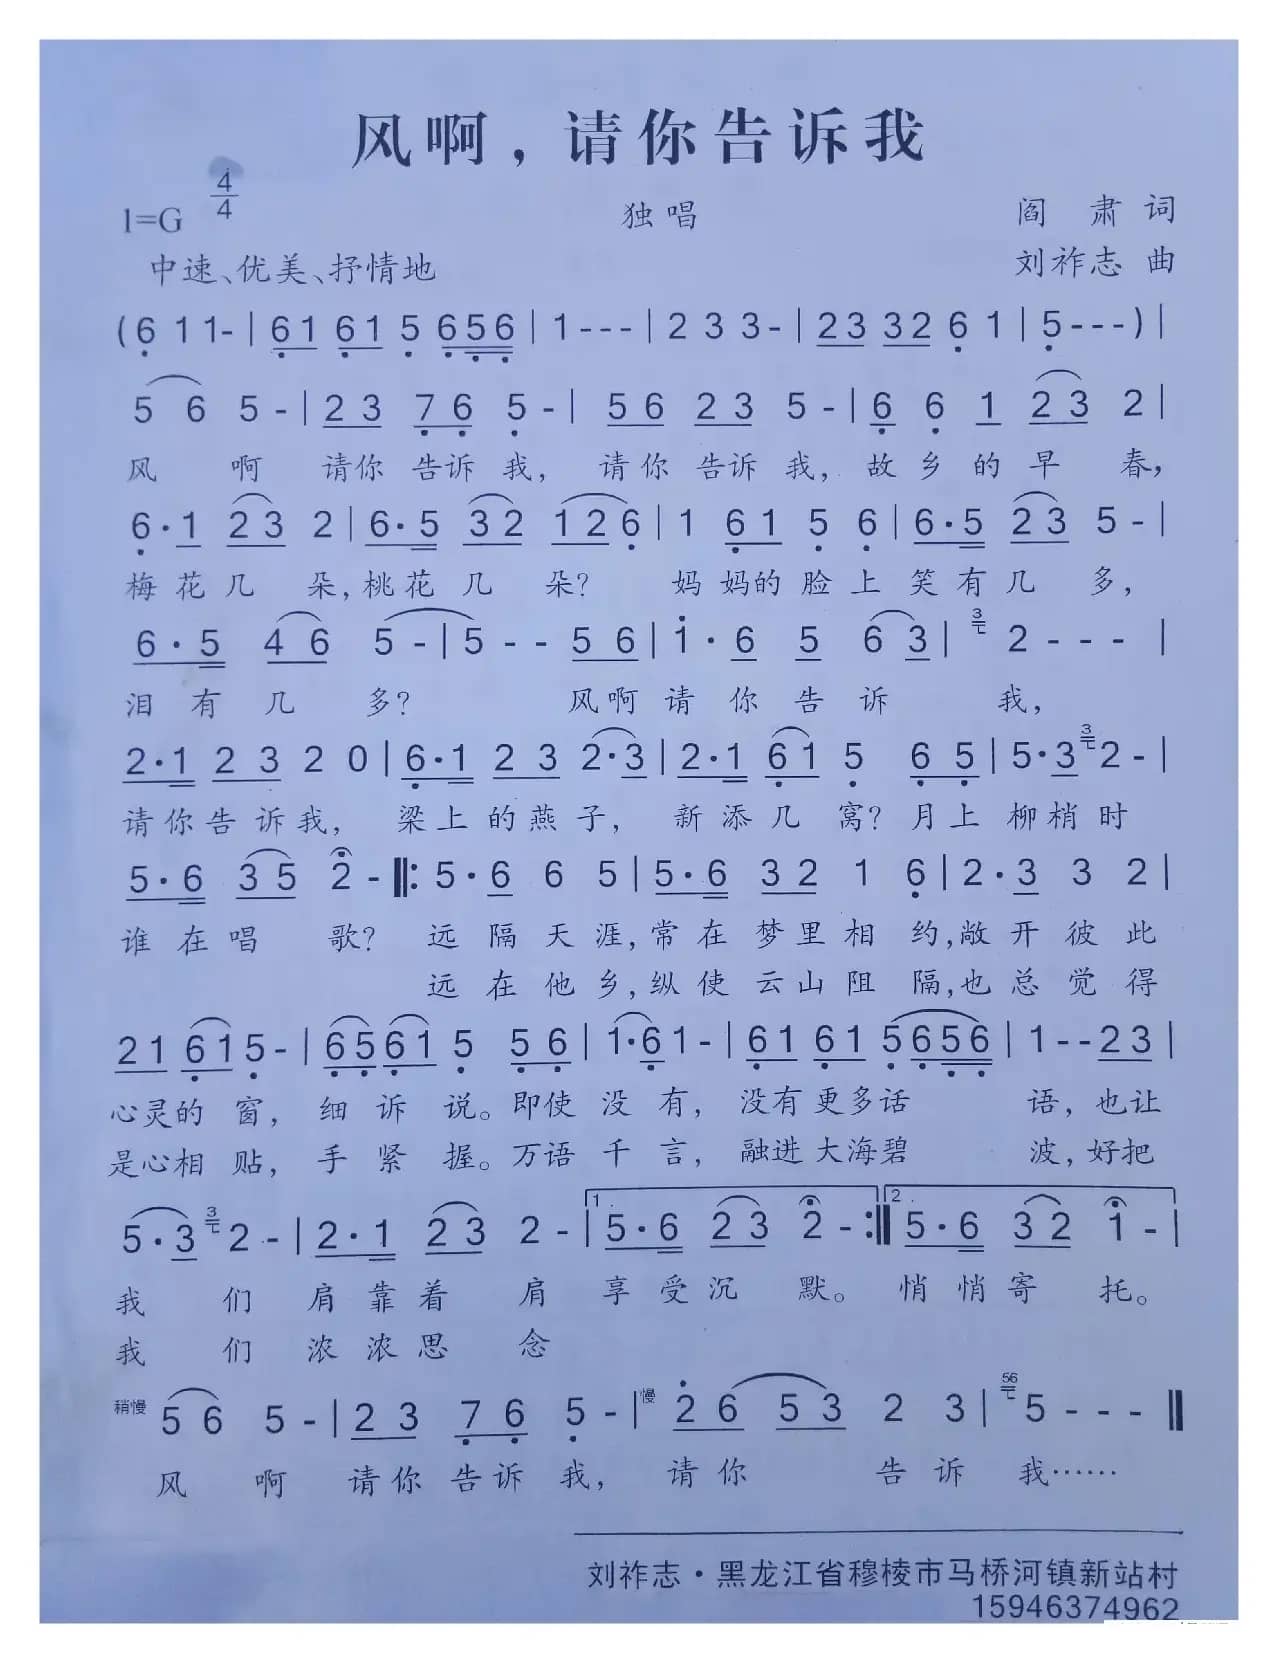 风啊，请你告诉我
1=G 4/4 独唱 阎肃词
中速、优美、抒情地 刘祚志 曲
(6 1 1- | 6 1 6 1 5 6 5 6 | 1 - - - | 2 3 3 - | 2 3 3 2 6 1 | 5 - - - ) |
5 6 5 - | 2 3 7 6 5 - | 5 6 2 3 5 - | 6 6 1 2 3 2 |
风 啊 请你 告诉 我， 请你 告诉 我， 故乡的早 春，
6 · 1 2 3 2 | 6 · 5 3 2 1 2 6 | 1 6 1 5 6 | 6 · 5 2 3 5 - |
梅花几 朵，桃花几 朵？ 妈妈的脸上笑有几 多，
6 · 5 4 6 5 - | 5 - - 5 6 | 1 · 6 5 6 3 | 3 2 - - - |
泪有几 多？ 风啊请你告诉 我，
2 · 1 2 3 2 0 | 6 · 1 2 3 2 · 3 | 2 · 1 6 1 5 6 5 | 5 · 3 3 2 - |
请你告诉我， 梁上的燕子， 新添几 窝？月上柳梢时
5 · 6 3 5 2 - ‖: 5 · 6 6 5 | 5 · 6 3 2 1 6 | 2 · 3 3 2 |
谁在唱 歌？ 远隔天涯，常在梦里相 约，敞开彼此
远在他乡，纵使云山阻 隔，也总觉得
2 1 6 1 5 - | 6 5 6 1 5 5 6 | 1 · 6 1 - | 6 1 6 1 5 6 5 6 | 1 - - 2 3 |
心灵的 窗， 细诉 说。即使没有， 没有更多话 语，也让
是心相 贴， 手紧 握。万语千言， 融进大海碧 波，好把
5 · 3 3 2 - | 2 · 1 2 3 2 - | 1. 5 · 6 2 3 2 - :‖ 2. 5 · 6 3 2 1 - |
我 们 肩靠着 肩 享受沉 默。 悄悄寄 托。
我 们 浓浓思 念
稍慢 5 6 5 - | 2 3 7 6 5 - | 慢 2 6 5 3 2 3 | 56 5 - - - ‖
风 啊 请你告诉 我， 请你 告诉 我……
刘祚志·黑龙江省穆棱市马桥河镇新站村
15946374962